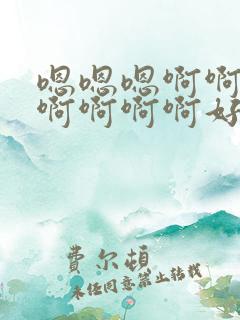 嗯嗯嗯啊啊
啊啊啊啊好
费尔顿
未经同意禁止转载